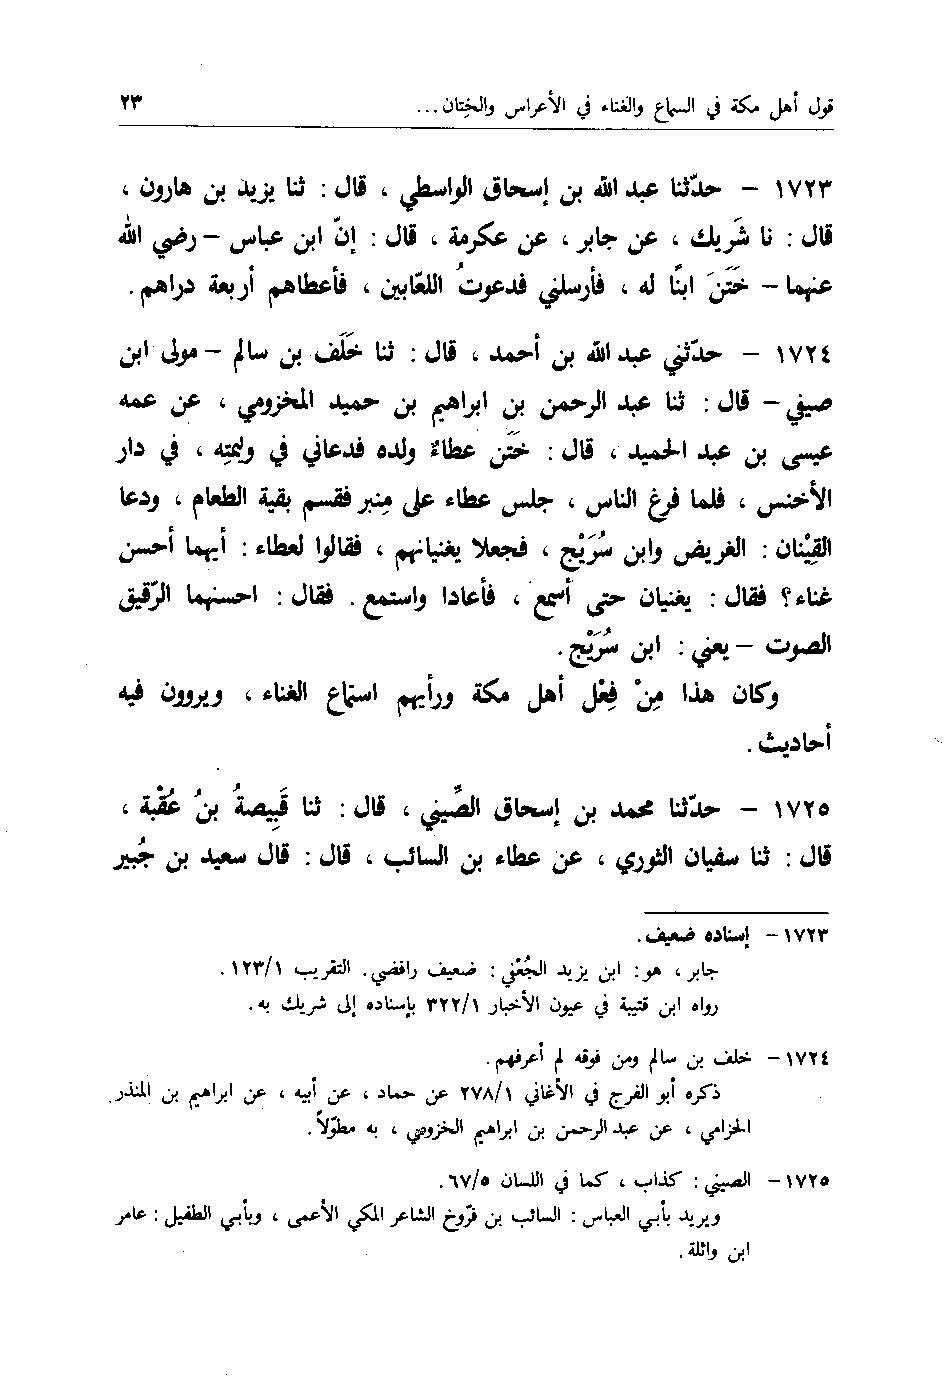 قول أهل مكة في السماع والغناء في الأعراس والختان ... ٢٣
١٧٢٣ - حدّثنا عبد الله بن إسحاق الواسطي ، قال : ثنا يزيد بن هارون ،
قال : نا شَريك ، عن جابر ، عن عكرمة ، قال : إنّ ابن عباس - رضي الله
عنهما - خَتَنَ ابنًا له ، فأرسلني فدعوتُ اللعّابين ، فأعطاهم أربعة دراهم .
١٧٢٤ - حدّثني عبد الله بن أحمد ، قال : ثنا خَلَف بن سالم - مولى ابن
صيفي - قال : ثنا عبد الرحمن بن ابراهيم بن حميد المخزومي ، عن عمه
عيسى بن عبد الحميد ، قال : خَتَن عطاءٌ ولده فدعاني في وليمتِه ، في دار
الأخنس ، فلما فرغ الناس ، جلس عطاء على مِنبر فقسم بقية الطعام ، ودعا
القِيْنان : الغريض وابن سُرَيْج ، فجعلا يغنيانهم ، فقالوا لعطاء : أيهما أحسن
غناء؟ فقال : يغنيان حتى أسمع ، فأعادا واستمع . فقال : احسنهما الرّقيق
الصوت - يعني : ابن سُرَيْج .
وكان هذا مِنْ فِعْل أهل مكة ورأيهم استماع الغناء ، ويروون فيه
أحاديث .
١٧٢٥ - حدّثنا محمد بن إسحاق الصِّيني ، قال : ثنا قَبِيصةُ بنُ عُقْبة ،
قال : ثنا سفيان الثوري ، عن عطاء بن السائب ، قال : قال سعيد بن جُبير
١٧٢٣ - إسناده ضعيف .
جابر ، هو : ابن يزيد الجُعْفي : ضعيف رافضي . التقريب ١٢٣/١ .
رواه ابن قتيبة في عيون الأخبار ٣٢٢/١ بإسناده إلى شريك به .
١٧٢٤ - خلف بن سالم ومن فوقه لم أعرفهم .
ذكره أبو الفرج في الأغاني ٢٧٨/١ عن حماد ، عن أبيه ، عن ابراهيم بن المنذر
الحزامي ، عن عبد الرحمن بن ابراهيم المخزومي ، به مطوّلاً .
١٧٢٥ - الصيني : كذاب ، كما في اللسان ٦٧/٥ .
ويريد بأبي العباس : السائب بن فرّوخ الشاعر المكي الأعمى ، وبأبي الطفيل : عامر
ابن واثلة .